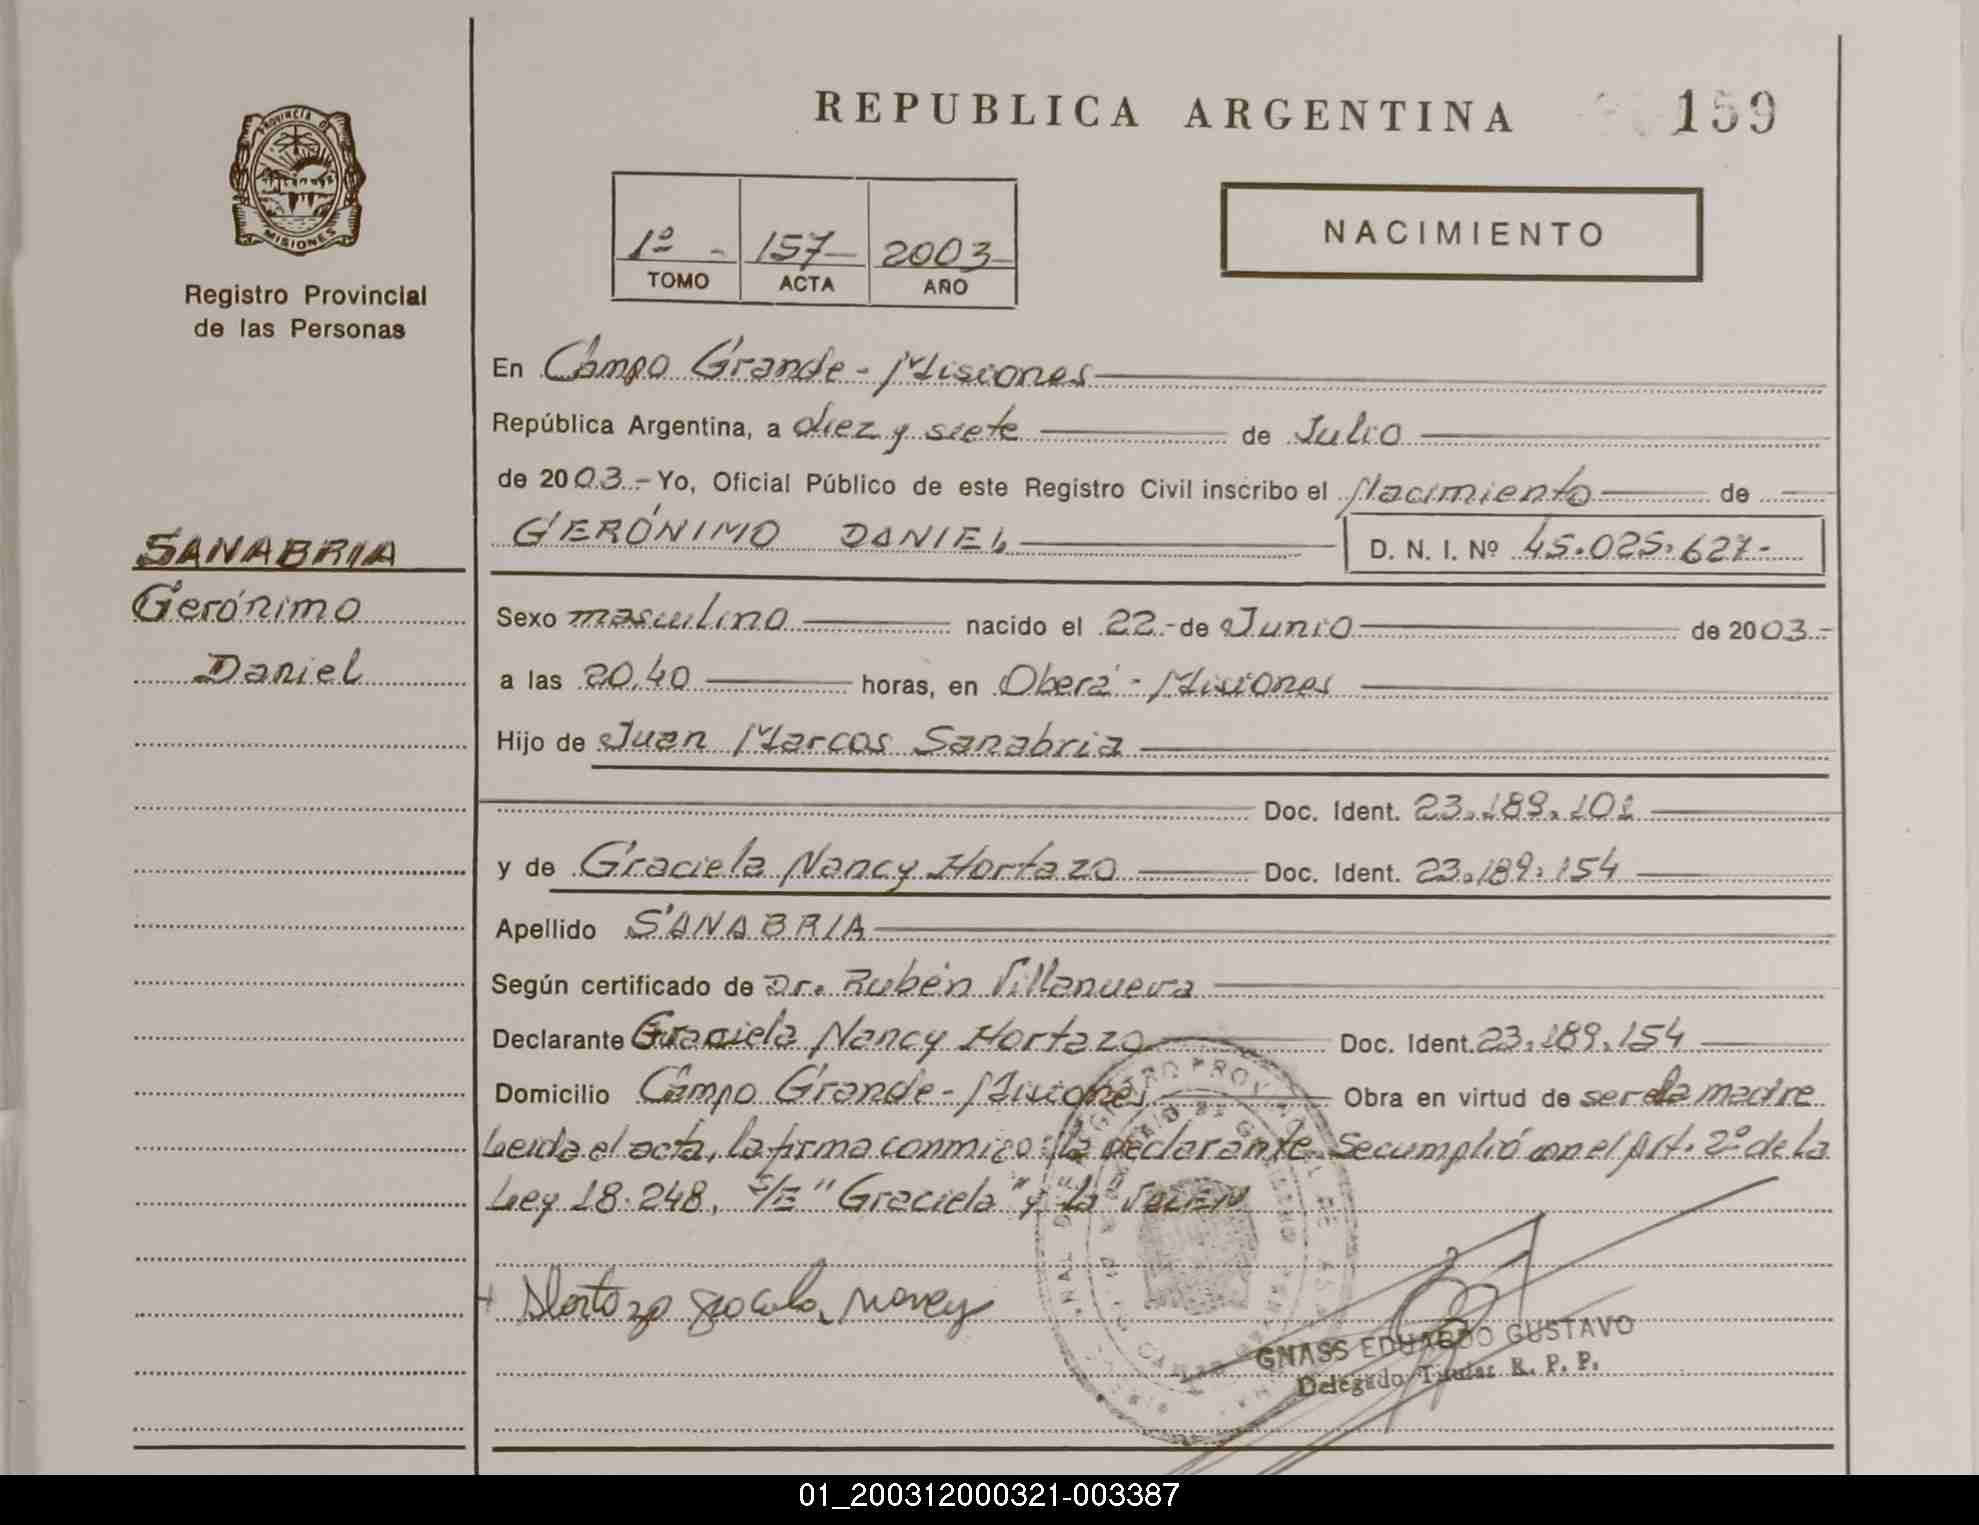 REPUBLICA ARGENTINA
159
PROVINCIA DE
MISIONES
Registro Provincial
de las Personas
1º - 157 - 2003 -
TOMO ACTA AÑO
NACIMIENTO
En Campo Grande - Misiones
República Argentina, a diez y siete de Julio
de 2003.- Yo, Oficial Público de este Registro Civil inscribo el Nacimiento de
GERÓNIMO DANIEL
D. N. I. Nº 45.025.627-
SANABRIA
Gerónimo
Daniel
Sexo masculino nacido el 22.- de Junio de 2003.-
a las 20,40 horas, en Oberá - Misiones
Hijo de Juan Marcos Sanabria
Doc. Ident. 23.189.101
y de Graciela Nancy Hortazo Doc. Ident. 23.189.154
Apellido SANABRIA
Según certificado de Dr. Rubén Villanueva
Declarante Graciela Nancy Hortazo Doc. Ident. 23.189.154
Domicilio Campo Grande - Misiones Obra en virtud de ser la madre
Leida el acta, la firma conmigo la declarante. Se cumplió con el Art. 2º de la
Ley 18.248, S/E "Graciela" y la VALEN
Hortazo Nancy
GNASS EDUARDO GUSTAVO
Delegado Titular R. P. P.
01_200312000321-003387